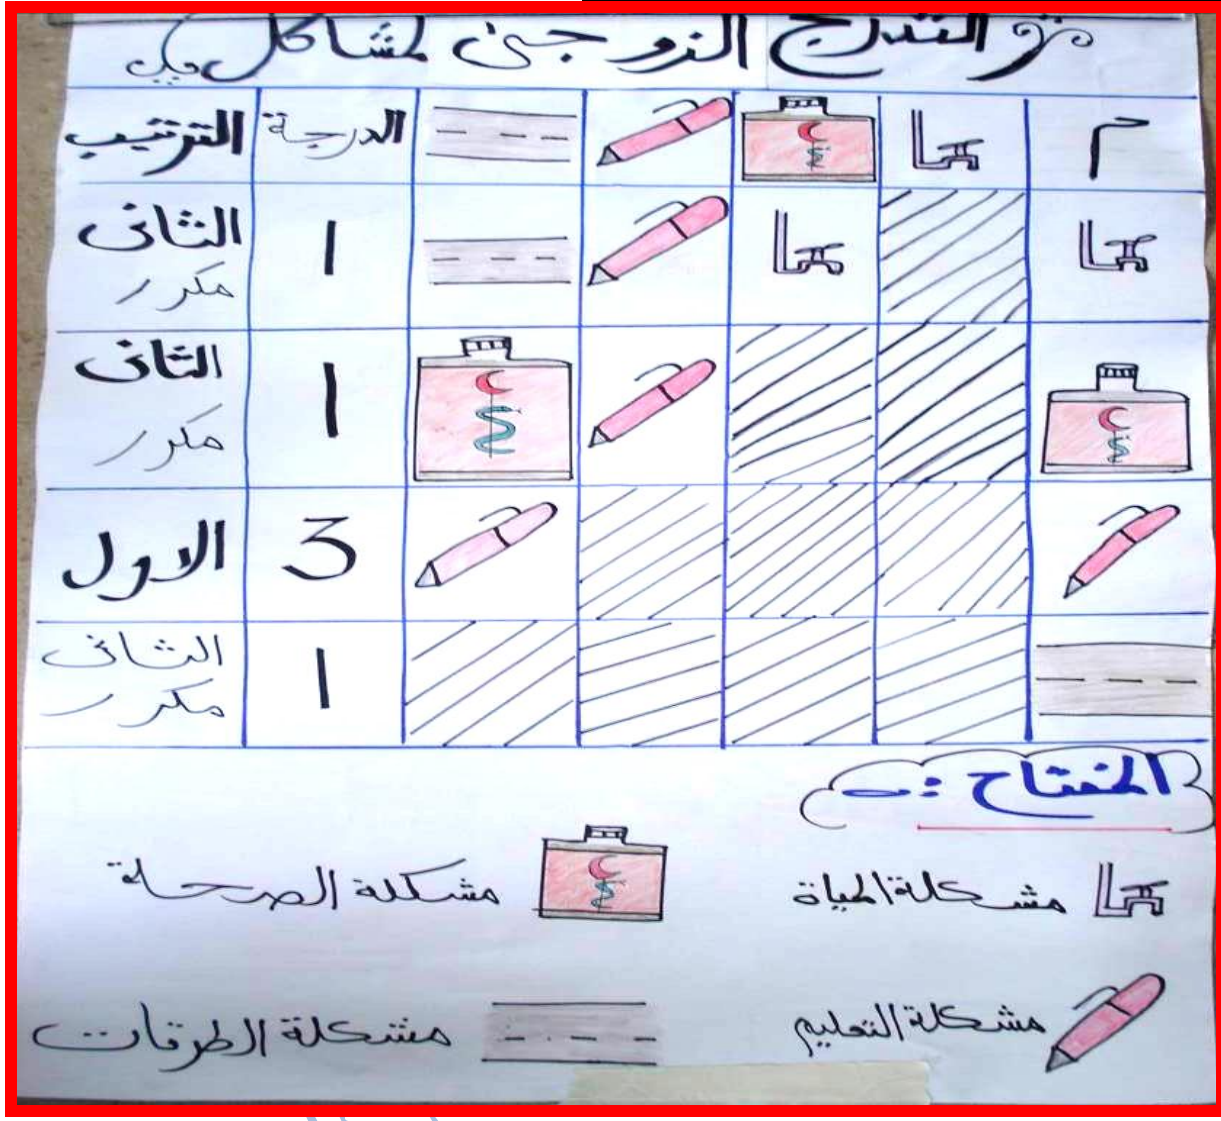 التدرج الزوجى لمشاكل
م الدرجة الترتيب
1 الثانى
مكرر
1 الثانى
مكرر
3 الاول
1 الثانى
مكرر
المفتاح :-
مشكلة المياة مشكلة الصحة
مشكلة التعليم مشكلة الطرقات